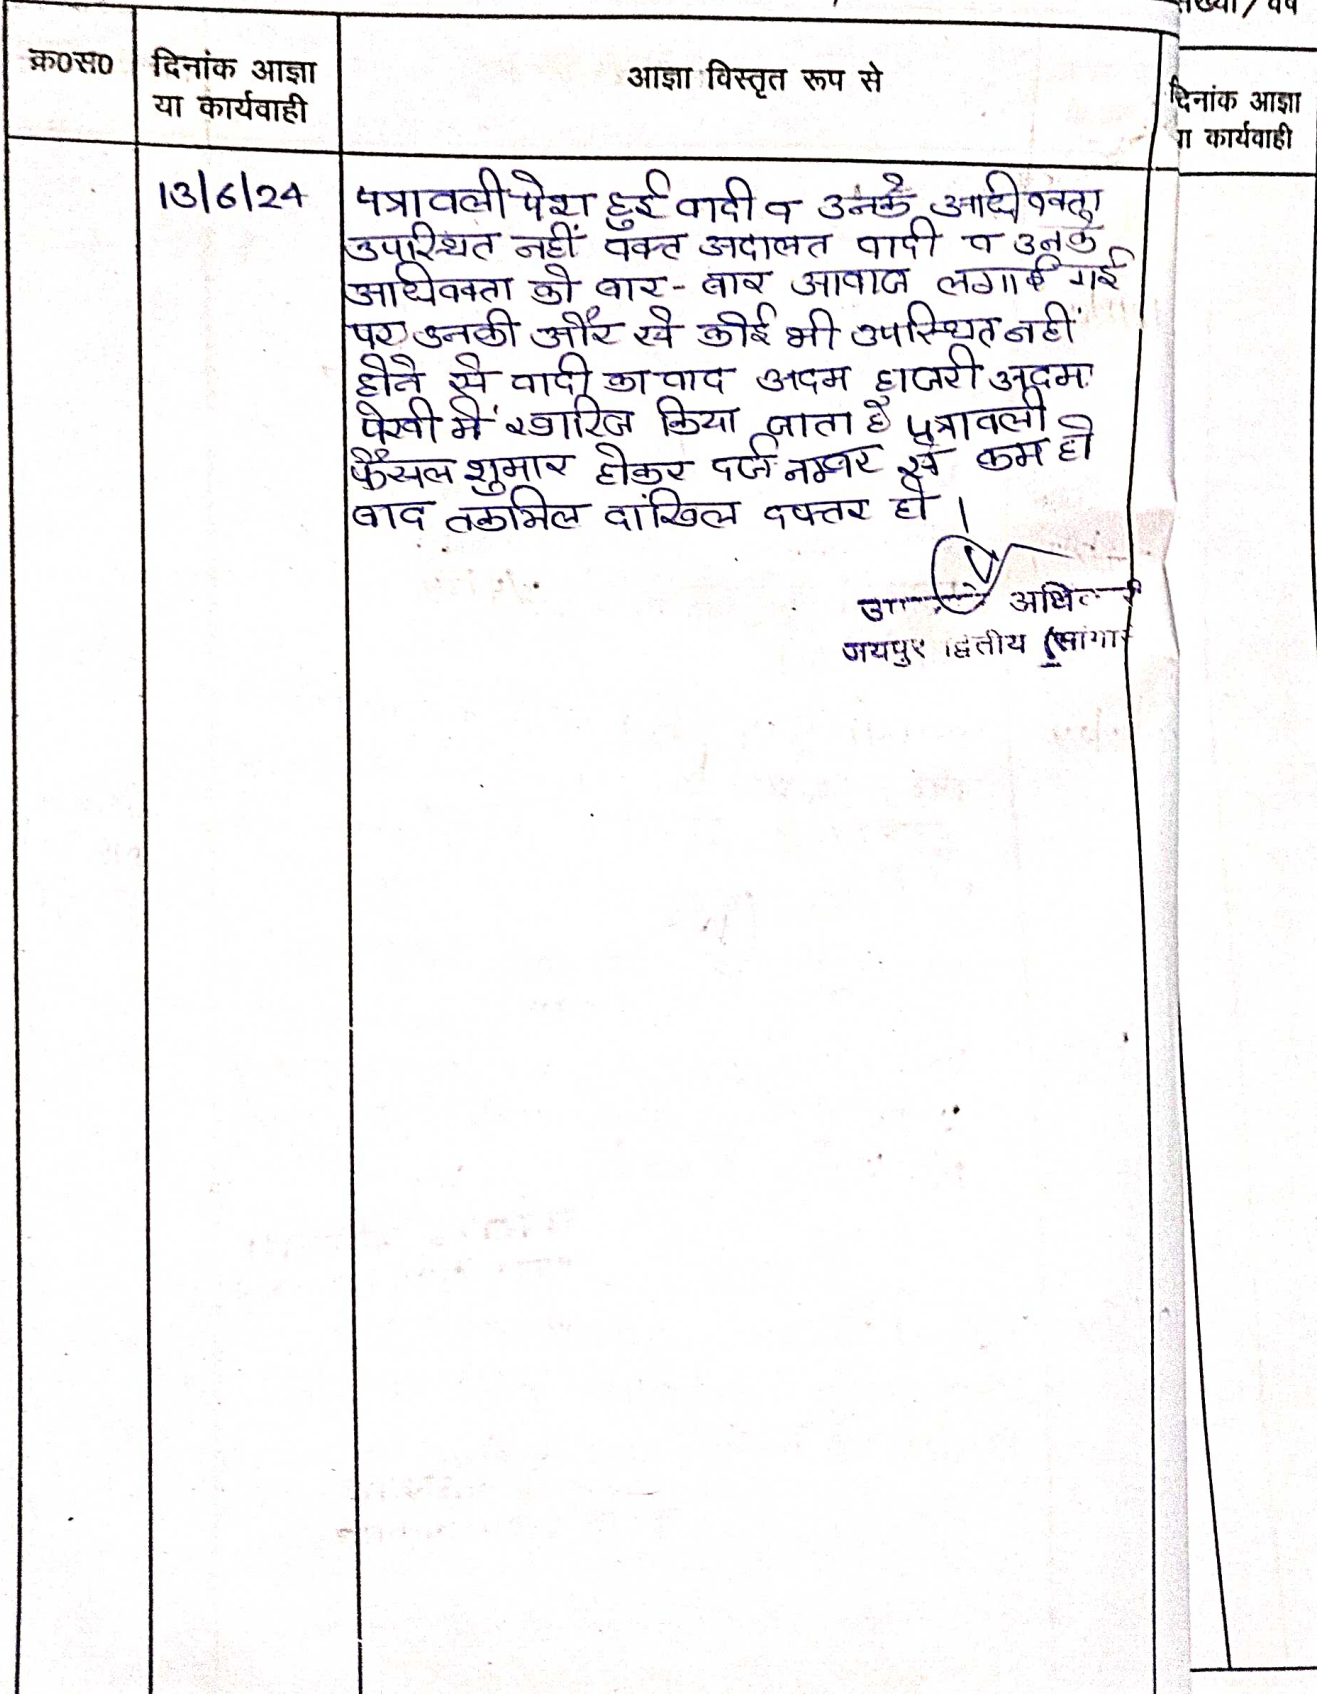 संख्या / वर्ष
क्र०स०
दिनांक आज्ञा
या कार्यवाही
आज्ञा विस्तृत रूप से
दिनांक आज्ञा
या कार्यवाही
13/6/24
पत्रावली पेश हुई वादी व उनके अधिवक्ता
उपस्थित नहीं वक्त अदालत वादी व उनके
अधिवक्ता को बार-बार आवाज लगाई गई
पर उनकी और से कोई भी उपस्थित नहीं
होने से वादी का वाद अदम हाजरी अदम
पेरवी में खारिज किया जाता है पत्रावली
फैसल शुमार होकर दर्ज नम्बर से कम हो
बाद तकमिल दाखिल दफ्तर हो ।
जयपुर द्वितीय (सांगा